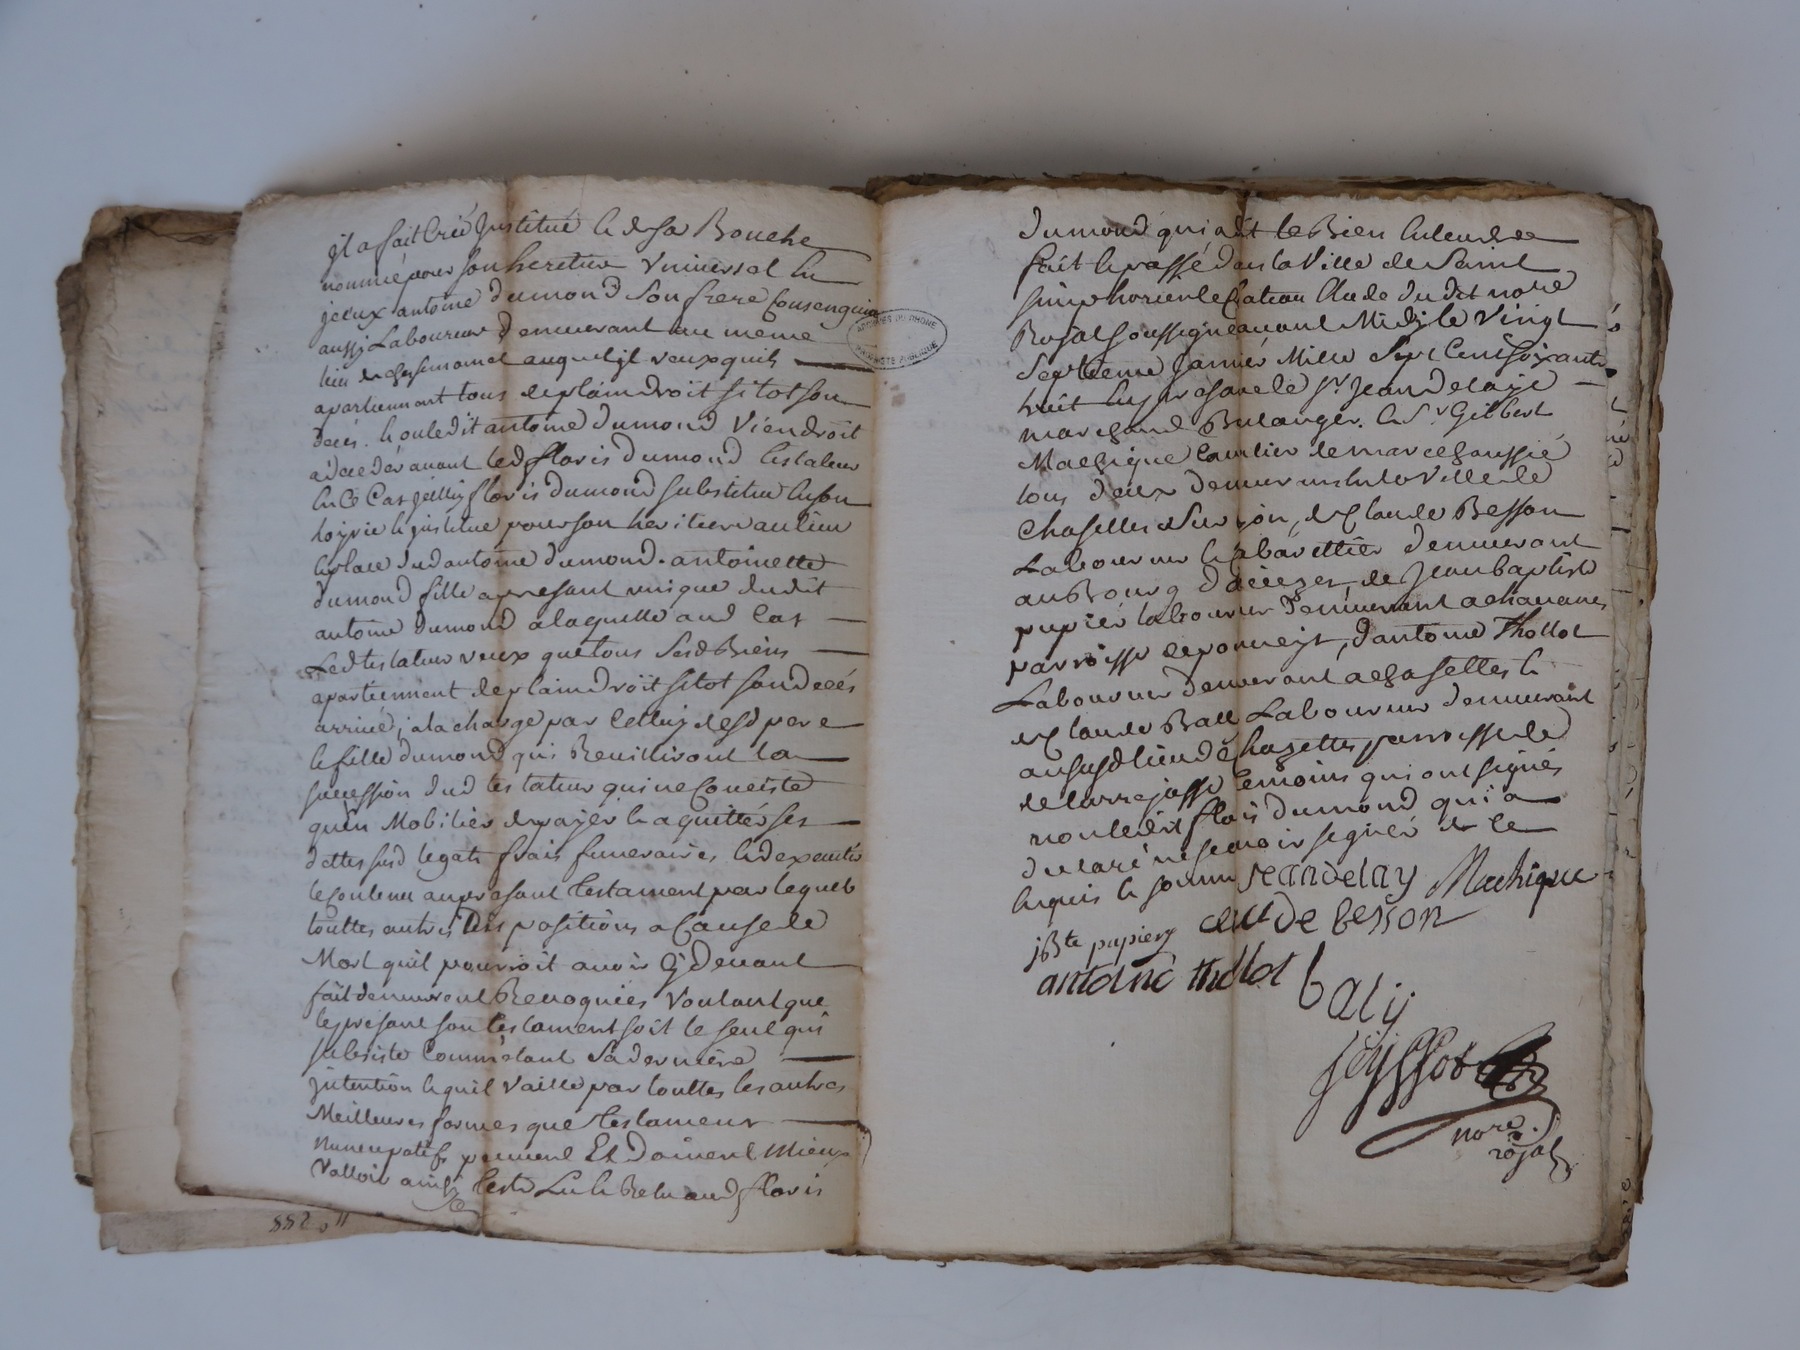 jl a fait Creé Jnstitué & de sa Bouche
nommé pour son heretier Vniversel &
jceux antoine dumond Son frere Consenguin
aussy Laboureur demeurant au meme
lieu de auquel jl veux quils
apartiennant tous de plain droit sitot son
deces. & ou ledit antoine dumond Viendroit
a deceder avant led floris dumond testateur
En Ce Cas jcelluy floris dumond substitue
& jnstitue pour son heritiere au lieu
& place dud antoine dumond. antoinette
dumond fille apresant unique dudit
antoine dumond a laquelle aud Cas
Led testateur veux que tous Sesd Biens
apartiennent de plain droit sitot son decés
arrivé, a la charge par Celluy desd pere
& fille dumond qui Reuilliront la
succession dud testateur qui ne Conciste
quen Mobilier de payer & aquitter ses
dettes susd legats frais funeraires & dexecuter
le Contenu au presant testament par lequel
touttes autres dispositions a Cause de
Mort quil pourroit avoir Cy devant
fait demeuront Revoquées Voulant que
le presant son testament soit le seul qui
subsiste Comme etant Sa derniere
jntention & quil Vaille par touttes les autres
Meilleures formes que testament
nuncupatif peuvent Et doivent Mieux
Valloir ainsy testé Lu & Relu aud floris
ARCHIVES DU RHONE
PROPRIÉTÉ PUBLIQUE
dumond qui a dit le Bien Entendre
fait & passé dans la Ville de Saint
simphorien le Chateau Etude dudit notre
Royal soussigné avant Midy le Vingt
Septieme Janvier Mille Sept Cent soixante
huit En presance de sr. Jean delaye
marchand Bulanger. & Sr. Gilbert
Machique Cavalier de marechaussée
tous deux demeurants En la Ville de
Chaselles sur Lion, de Claude Besson
Laboureur & Cabarettier demeurant
au Bourg de Jean baptiste
pupier laboureur demeurant a
parroisse de pomeys, dantoine Thollot
Laboureur demeurant a chasettes &
de Claude Bally Laboureur demeurant
au susd lieu de Chazettes parroisse de
de Larrajasse temoins qui ont signés
non ledit floris dumond qui a
declaré ne scavoir signer de ce
Enquis & somme Jeandelay Machique
claude besson
jBte pupier
antoine thollot baly
Seyssot
nore.
roÿal
882